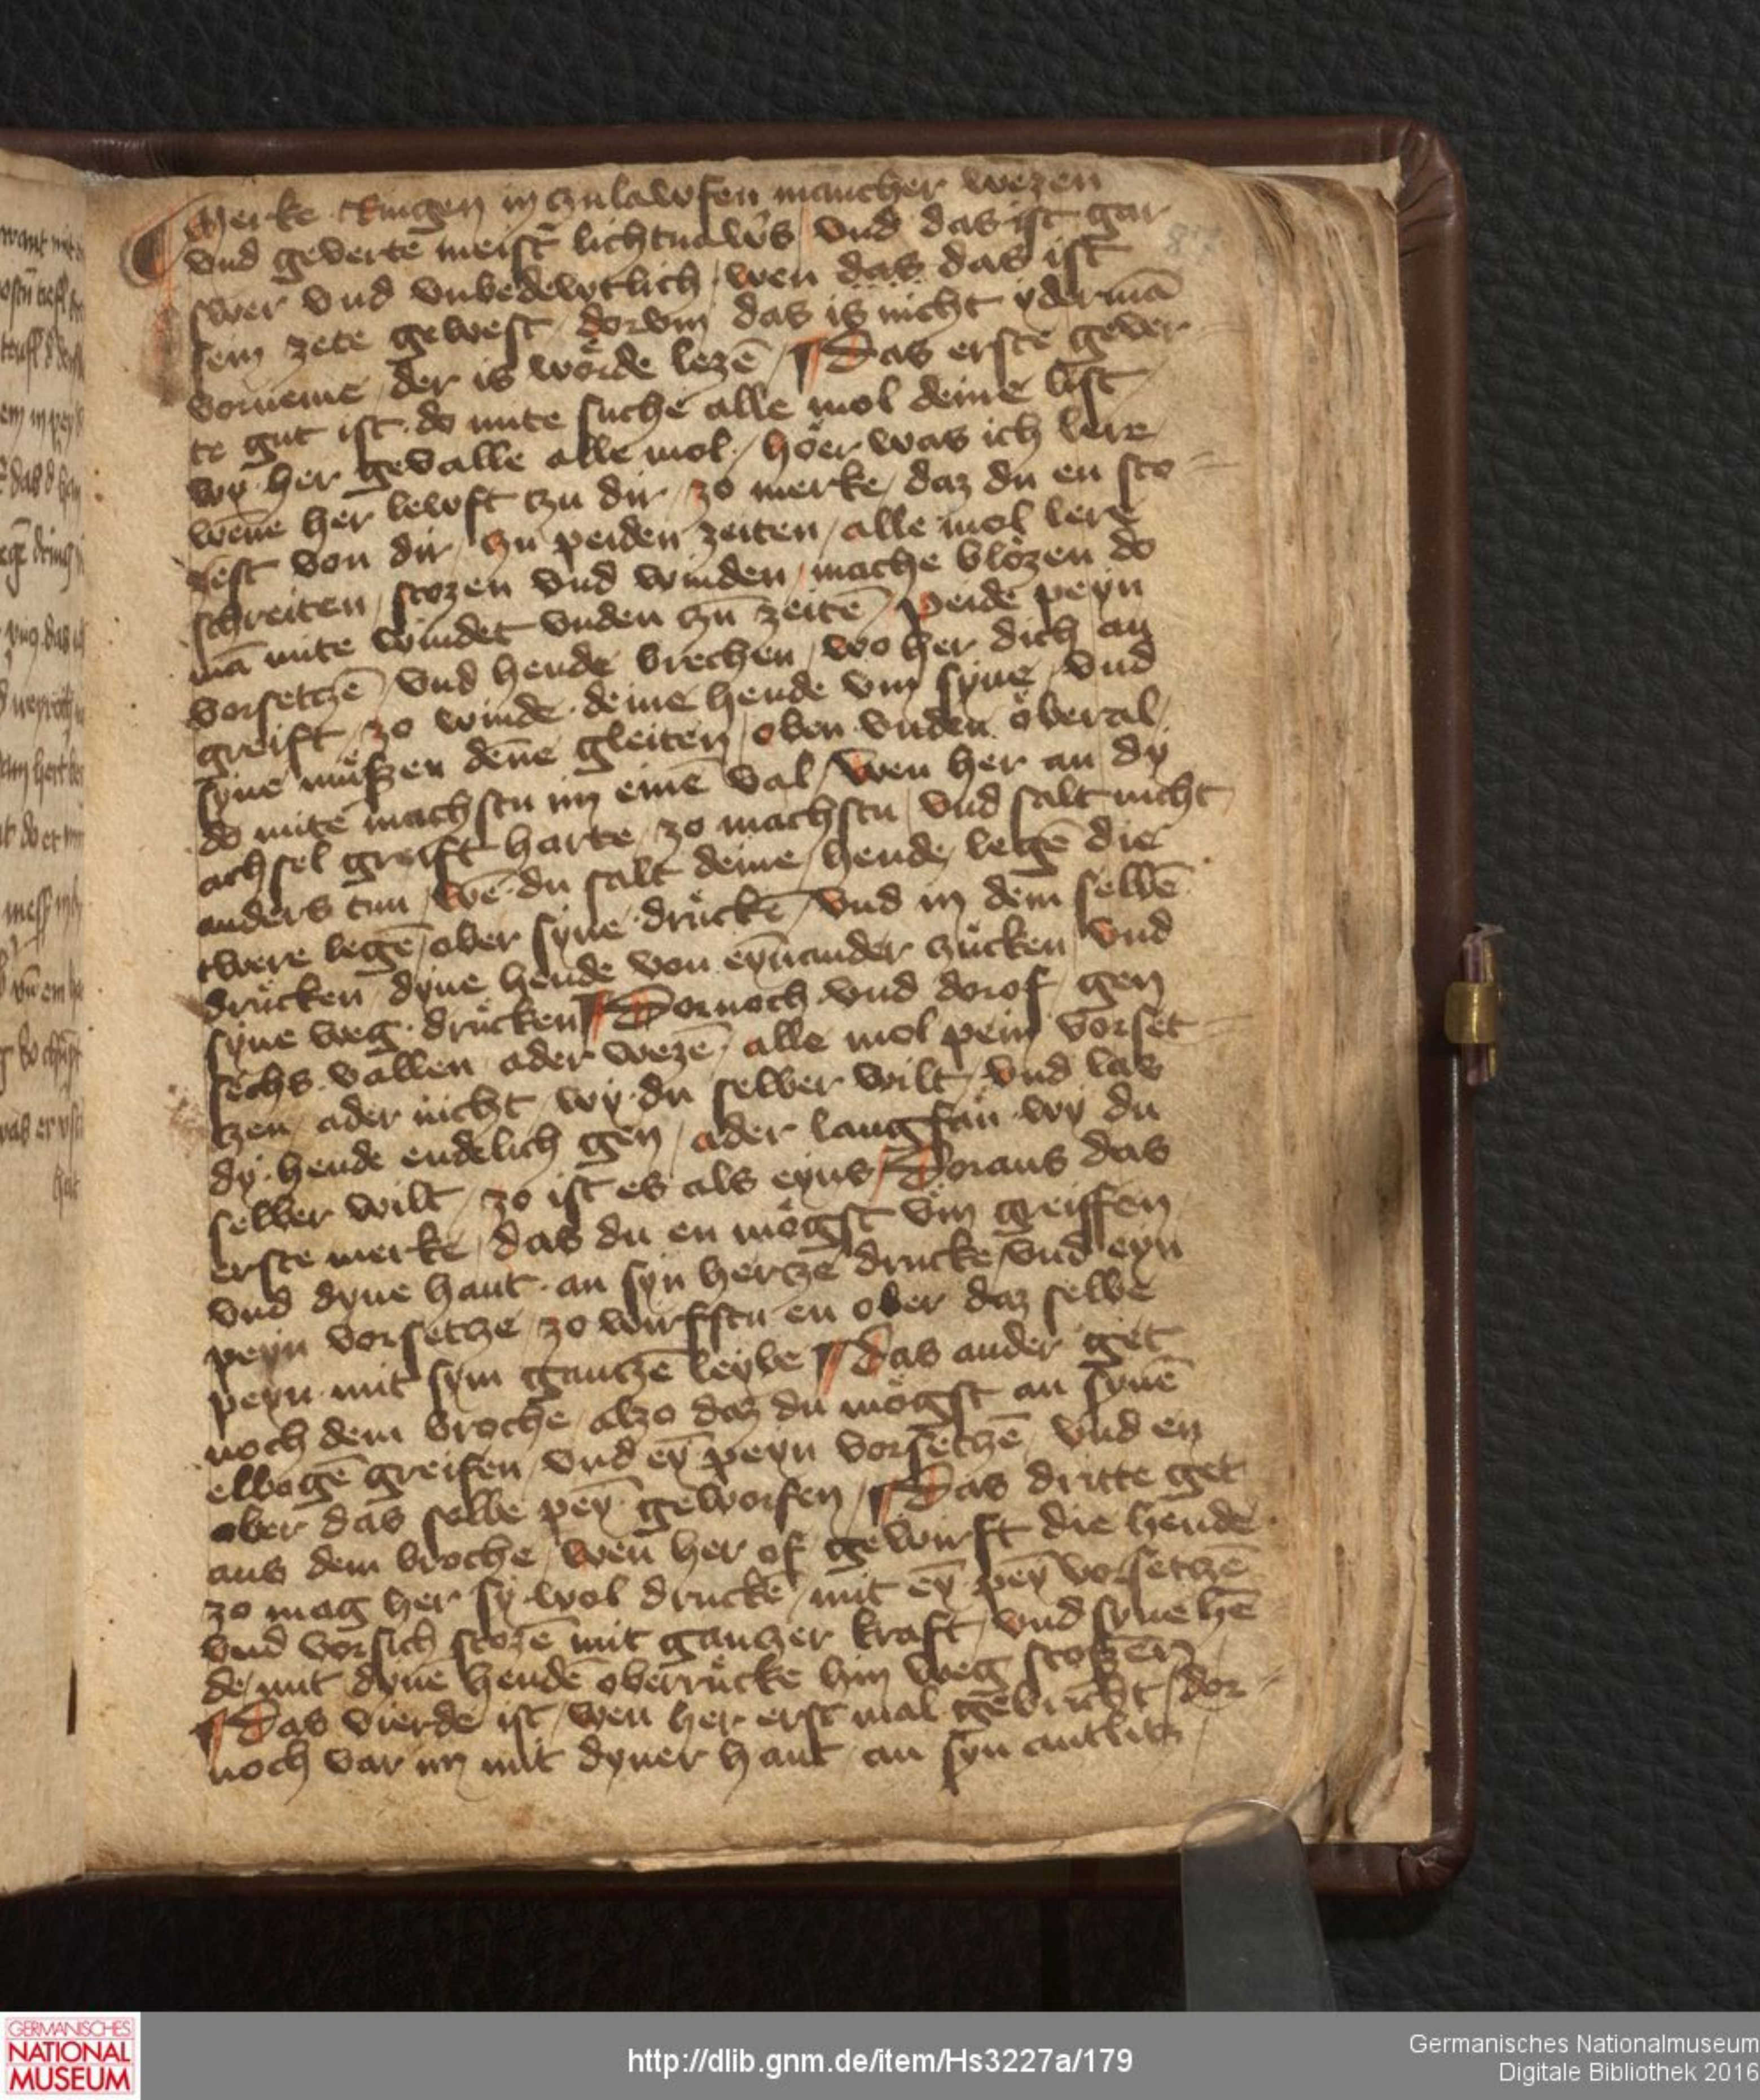 Merke Ringen in zulawfen mancher wezen
vnd geverte meist̄ lichtnawˢs vnd das ist gar
swer vnd vnbedewtlich / wen das das ist
sein zete gewest / dorvm das is nicht ydermā
vorneme / der is wörde lezē / Das erste gever-
te gut ist · do mite suche alle mol deine list
wy her gevalle alle mol / höer was ich lere
wene her lewft tzu dir / zo merke / daz du en sto-
zest von dir / zu peiden zeiten / alle mol lere
schreiten / stozen vnd winden / mache blözen do
mā mite windet vnden zu zeitē / peide peyn
vorsetczē / vnd hende brechen / wo her dich an
greift / zo winde deine hende vm syne / vnd
syne müszen denne gleiten / oben vnden öberal
do mite machstu im einē val / wen her an dy
achsel greift harte / zo machstu / vnd salt nicht
anders tun / wē du salt deine / hende / legē die
twere legē / ober syne drückē / vnd in dem selbē
drücken dyne hende von eynander zücken vnd
syne weg drücken Dornoch vnd dorof gen
sechs vallen ader wezē / alle mol pein vorset-
zen / ader nicht / wy du selber wilt / vnd las
dy hende endelich gen / ader langsan wy du
selber wilt / zo ist es als eyns / Doraus das
erste merke / das du en mögst vm greiffen
vnd dyne hant an syn hertze drucke / vnd eyn
peyn vorsetcze / zo wirfstu en ober daz selbe
peyn mit sym gantzē leybe Das ander get
noch dem broche / alzo daz du mögst an synē
elbogē greifen / vnd eȳ peyn vorsetczē / vnd en
ober das selbe peȳ geworfen / Das dritte get
aus dem broche / wen her of gewirft die hende
zo mag her sy wol druckē / mit eȳ peȳ vorsetczē
vnd vorsich stozē mit ganczer kraft / vnd syne hē
de / mit dynē hendē oberrücke hin weg stoszen
Das vierde ist / wen her erst mal gebricht / dor-
noch var im mit dyner hant an syn antlitz
GERMANISCHES
NATIONAL
MUSEUM
http://dlib.gnm.de/item/Hs3227a/179
Germanisches Nationalmuseum
Digitale Bibliothek 2016